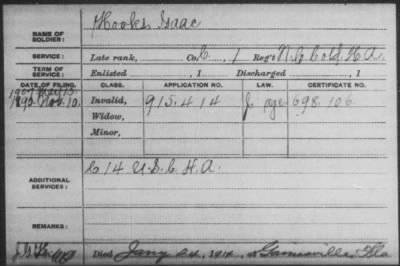 NAME OF SOLDIER: Hooks Isaac
SERVICE: Late rank, Co. C, 1 Reg't N.C. Cold H.A.
TERM OF SERVICE: Enlisted , 1 Discharged , 1
DATE OF FILING. CLASS. APPLICATION NO. LAW. CERTIFICATE NO.
1907 May 13.
1890 Nov. 10. Invalid, 915.414 698.106
Widow,
Minor,
ADDITIONAL SERVICES: C 14 U.S.C.H.A.
REMARKS:
Died Jany 24, 1914, at Gainesville, Fla